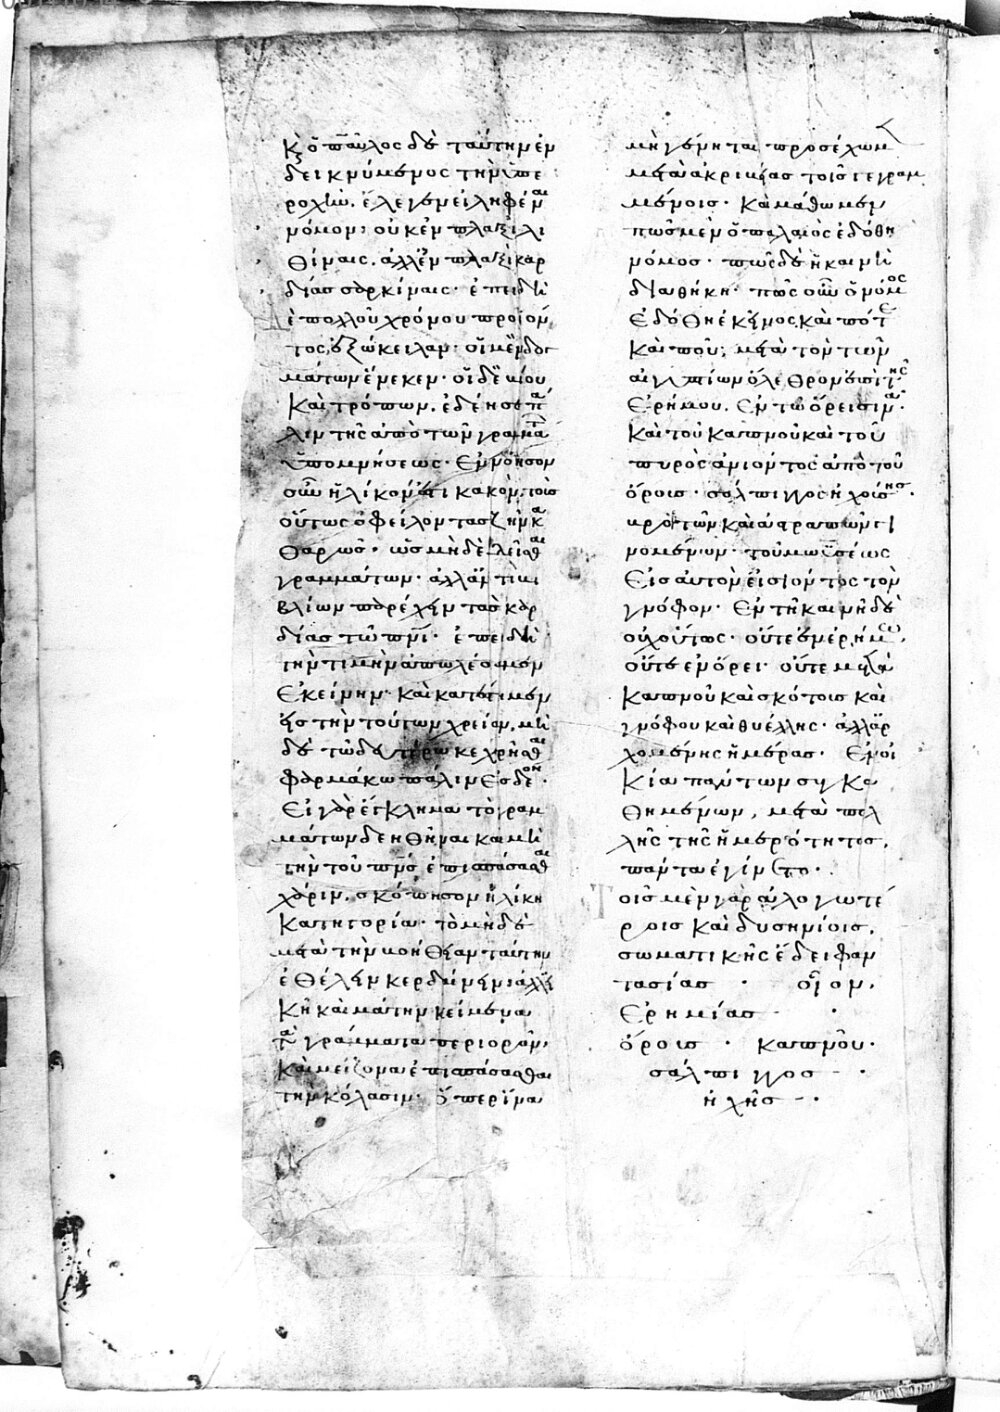 Κ ὁ παῦλος δὲ ταύτην ἐν
δεικνύμενος τὴν ὑπε
ροχὴν, ἔλεγεν εἰληφέναι
νόμον· οὐκ ἐν πλαξὶ λι
θίναις, ἀλλ' ἐν πλαξὶ καρ
δίας σαρκίναις· ἐπειδὴ
ἐπολλοῦ χρόνου προϊόν
τος, ἐξώκειλαν· οἱ μὲν δογ
μάτων ἕνεκεν· οἱ δὲ βίου
καὶ τρόπων, ἐδέησε πά
λιν τῆς ἀπὸ τῶν γραμμάτων
ὑπομνήσεως· Ἐννόησον
οὖν ἡλίκον ἐστὶ κακὸν, τοὺς
οὕτως ὀφείλοντας ζῆν κα
θαρῶς· ὡς μὴ δὲ δεῖσθαι
γραμμάτων· ἀλλ' ἀντὶ βι
βλίων παρέχειν τὰς καρ
δίας τῷ πνι· ἐπειδὴ
τὴν τιμὴν ἀπωλέσαμεν
Ἐκείνην· καὶ κατέστημεν
εἰς τὴν τούτων χρείαν, μὴ
δὲ τῷ δευτέρῳ κεχρῆσθαι
φαρμάκῳ πάλιν εἰς δέον·
Εἰ γὰρ ἔγκλημα τὸ γραμ
μάτων δεηθῆναι καὶ μὴ
τὴν τοῦ πνς ἐπισπάσασθαι
χάριν, σκόπησον ἡλίκη
κατηγορία· τὸ μὴ δὲ
μετὰ τὴν βοήθειαν ταύτην
ἐθέλειν κερδαίνειν· ἀλλ' εἰ
κῆ καὶ μάτην κείμενα
τὰ γράμματα περιορᾶν,
καὶ μείζονα ἐπισπάσασθαι
τὴν κόλασιν· ὅπερ ἵνα
μὴ γένηται προσέχωμεν
μετὰ ἀκριβείας τοῖς γεγραμ
μένοις· Καὶ μάθωμεν
πῶς μὲν ὁ παλαιὸς ἐδόθη
νόμος· πῶς δὲ ἡ καινὴ
διαθήκη· πῶς οὖν ὁ νόμος
Ἐδόθη ἐκεῖνος, καὶ πότε
καὶ ποῦ; μετὰ τὸν τῶν
αἰγυπτίων ὄλεθρον ἐπὶ τῆς
Ἐρήμου, Ἐν τῷ ὄρει σινᾶ·
καὶ τοῦ καπνοῦ καὶ τοῦ
πυρὸς ἀνιόντος ἀπὸ τοῦ
ὄρους· σάλπιγγος ἠχούσης·
βροντῶν καὶ ἀστραπῶν γι
νομένων· τοῦ μωϋσέως
εἰς αὐτὸν εἰσιόντος τὸν
γνόφον· Ἐν τῇ καινῇ δὲ
οὐχ οὕτως· οὔτε ἐν ἐρήμω,
οὔτε ἐν ὄρει· οὔτε μετὰ
καπνοῦ καὶ σκότους καὶ
γνόφου καὶ θυέλλης· ἀλλ' ἀρ
χομένης ἡμέρας· Ἐν οἰ
κία πάντων συγκα
θημένων, μετὰ πολ
λῆς τῆς ἡμερότητος,
πάντα ἐγίνετο·
Τοῖς μὲν γὰρ ἀλογωτέ
ροις καὶ δυσηνίοις,
σωματικῆς ἔδει φαν
τασίας · οἷον,
Ἐρημίας ·
ὄρους · καπνοῦ·
σάλπιγγος ·
ἠχῆς ·